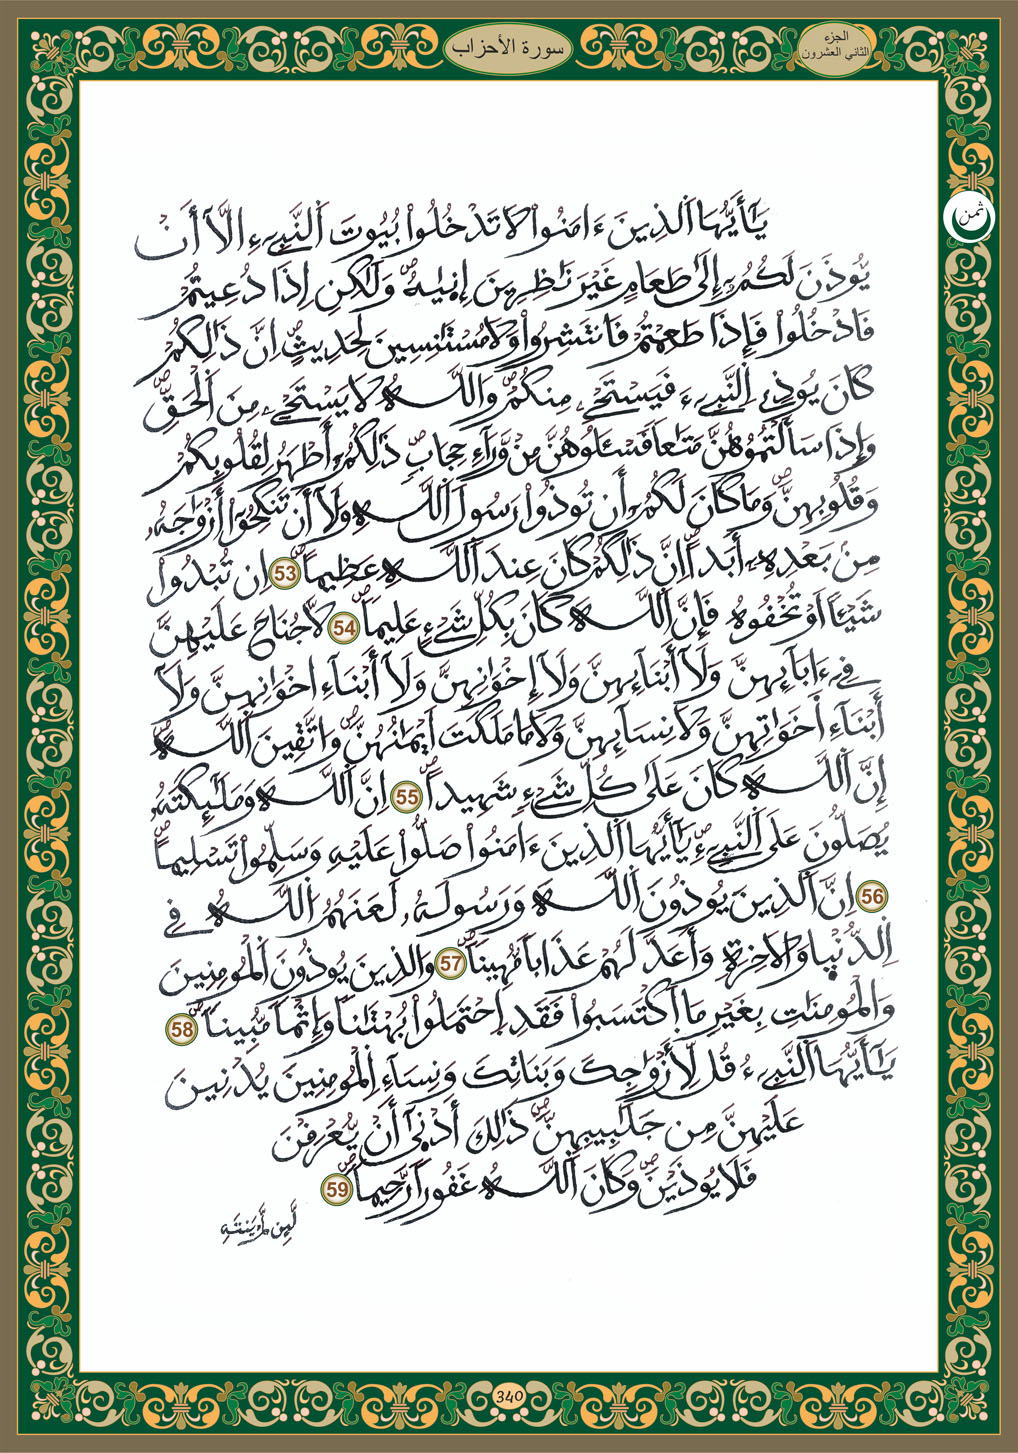 الجزء
الثاني العشرون
سورة الأحزاب
ثمن
يَٰٓأَيُّهَا اَلذِينَ ءَامَنُواْ لَا تَدْخُلُواْ بُيُوتَ اَلنَّبِےٓءِ الَّآ أَنْ
يُّوذَنَ لَكُمُۥٓ إِلَىٰ طَعَامٍ غَيْرَ نَٰظِرِينَ إِنٜيٰهُۖ وَلَٰكِنِ إِذَا دُعِيتُمْ
فَادْخُلُواْ فَإِذَا طَعِمْتُمْ فَانتَشِرُواْ وَلَا مُسْتَٰنِسِينَ لِحَدِيثٍۖ اِنَّ ذَٰلِكُمْ
كَانَ يُوذِے اِلنَّبِےٓءَ فَيَسْتَحْيِۦ مِنكُمْۖ وَاللَّهُ لَا يَسْتَحْيِۦ مِنَ اَلْحَقِّۖ
وَإِذَا سَأَلْتُمُوهُنَّ مَتَٰعاً فَسْـَٔلُوهُنَّ مِنْ وَّرَآءِ حِجَابٍۖ ذَٰلِكُمُۥٓ أَطْهَرُ لِقُلُوبِكُمْ
وَقُلُوبِهِنَّۖ وَمَا كَانَ لَكُمُۥٓ أَن تُوذُواْ رَسُولَ اَللَّهِ وَلَآ أَن تَنكِحُوٓاْ أَزْوَٰجَهُۥ
مِنۢ بَعْدِهِۦٓ أَبَداًۖ اِنَّ ذَٰلِكُمْ كَانَ عِندَ اَللَّهِ عَظِيماًۖ 53 اِن تُبْدُواْ
شَيْـٔاً اَوْ تُخْفُوهُ فَإِنَّ اَللَّهَ كَانَ بِكُلِّ شَےْءٍ عَلِيماًۖ 54 لَّا جُنَاحَ عَلَيْهِنَّ
فِےٓ ءَابَآئِهِنَّ وَلَآ أَبْنَآئِهِنَّ وَلَآ إِخْوَٰنِهِنَّ وَلَآ أَبْنَآءِ اخْوَٰنِهِنَّ وَلَآ
أَبْنَآءِ اَ۬خَوَٰتِهِنَّ وَلَا نِسَآئِهِنَّ وَلَا مَا مَلَكَتَ اَيْمَٰنُهُنَّۖ وَاتَّقِينَ اَللَّهَۖ
إِنَّ اَللَّهَ كَانَ عَلَىٰ كُلِّ شَےْءٍ شَهِيداًۖ 55 اِنَّ اَللَّهَ وَمَلَٰٓئِكَتَهُۥ
يُصَلُّونَ عَلَى اَلنَّبِےٓءِۖ يَٰٓأَيُّهَا اَلذِينَ ءَامَنُواْ صَلُّواْ عَلَيْهِ وَسَلِّمُواْ تَسْلِيماًۖ
56 اِنَّ اَلذِينَ يُوذُونَ اَللَّهَ وَرَسُولَهُۥ لَعَنَهُمُ اُللَّهُ فِے
اِلدُّنْيٜا وَالَاخِرَةِ وَأَعَدَّ لَهُمْ عَذَاباً مُّهِيناًۖ 57 وَالذِينَ يُوذُونَ اَلْمُومِنِينَ
وَالْمُومِنَٰتِ بِغَيْرِ مَا اَكْتَسَبُواْ فَقَدِ اِحْتَمَلُواْ بُهْتَٰناً وَإِثْماً مُّبِيناًۖ 58
يَٰٓأَيُّهَا اَلنَّبِےٓءُ قُل لِّأَزْوَٰجِكَ وَبَنَاتِكَ وَنِسَآءِ اِلْمُومِنِينَ يُدْنِينَ
عَلَيْهِنَّ مِن جَلَٰبِيبِهِنَّۖ ذَٰلِكَ أَدْنٜىٰٓ أَنْ يُّعْرَفْنَ
فَلَا يُوذَيْنَۖ وَكَانَ اَللَّهُ غَفُوراً رَّحِيماًۖ 59
لَّئِن لَّمْ يَنتَهِ
340